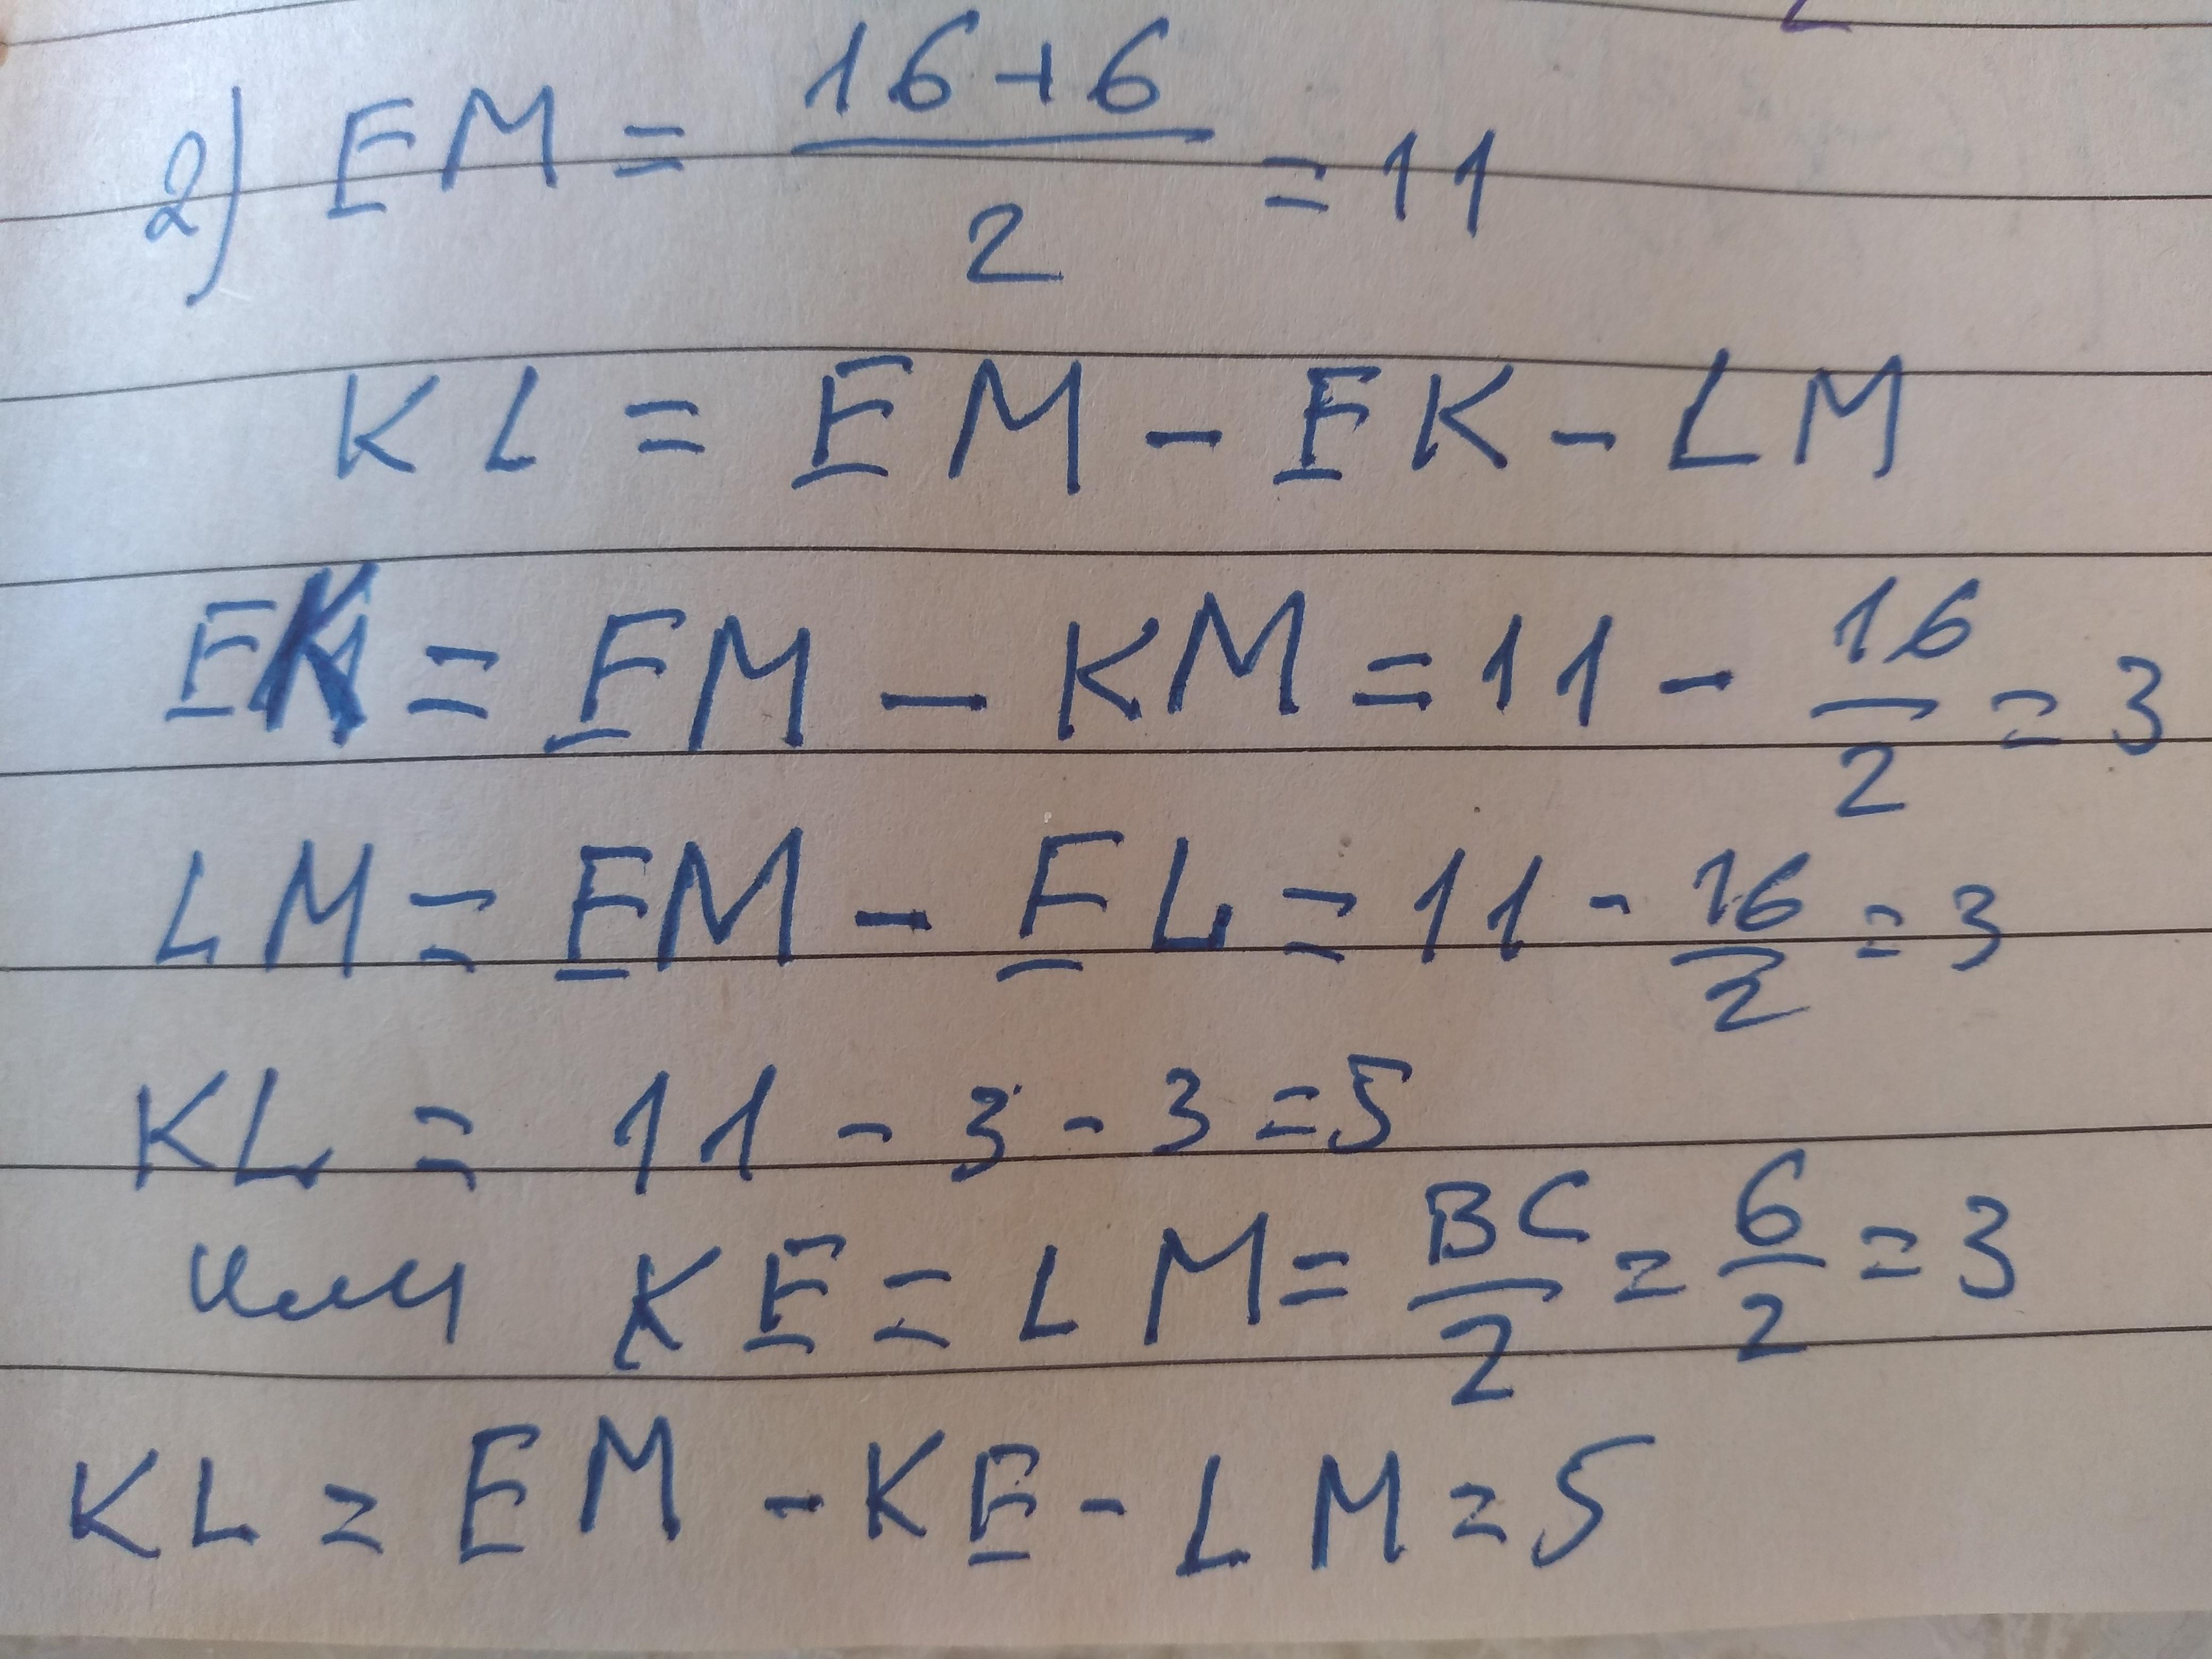 2) EM = (16+6)/2 = 11
KL = EM - EK - LM
EK = EM - KM = 11 - 16/2 = 3
LM = EM - EL = 11 - 16/2 = 3
KL = 11 - 3 - 3 = 5
или KE = LM = BC/2 = 6/2 = 3
KL = EM - KE - LM = 5